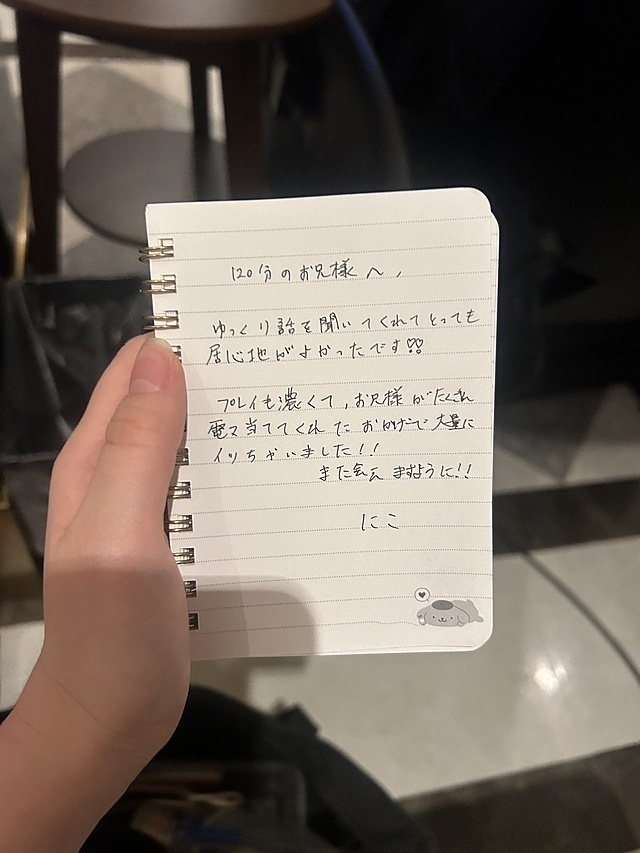 120分のお兄様へ、
ゆっくり話を聞いてくれてとっても
居心地がよかったです♡♡
プレイも濃くて、お兄様がたくさん
電マ当ててくれたおかげで大量に
イッちゃいました!!
また会えますように!!
にこ